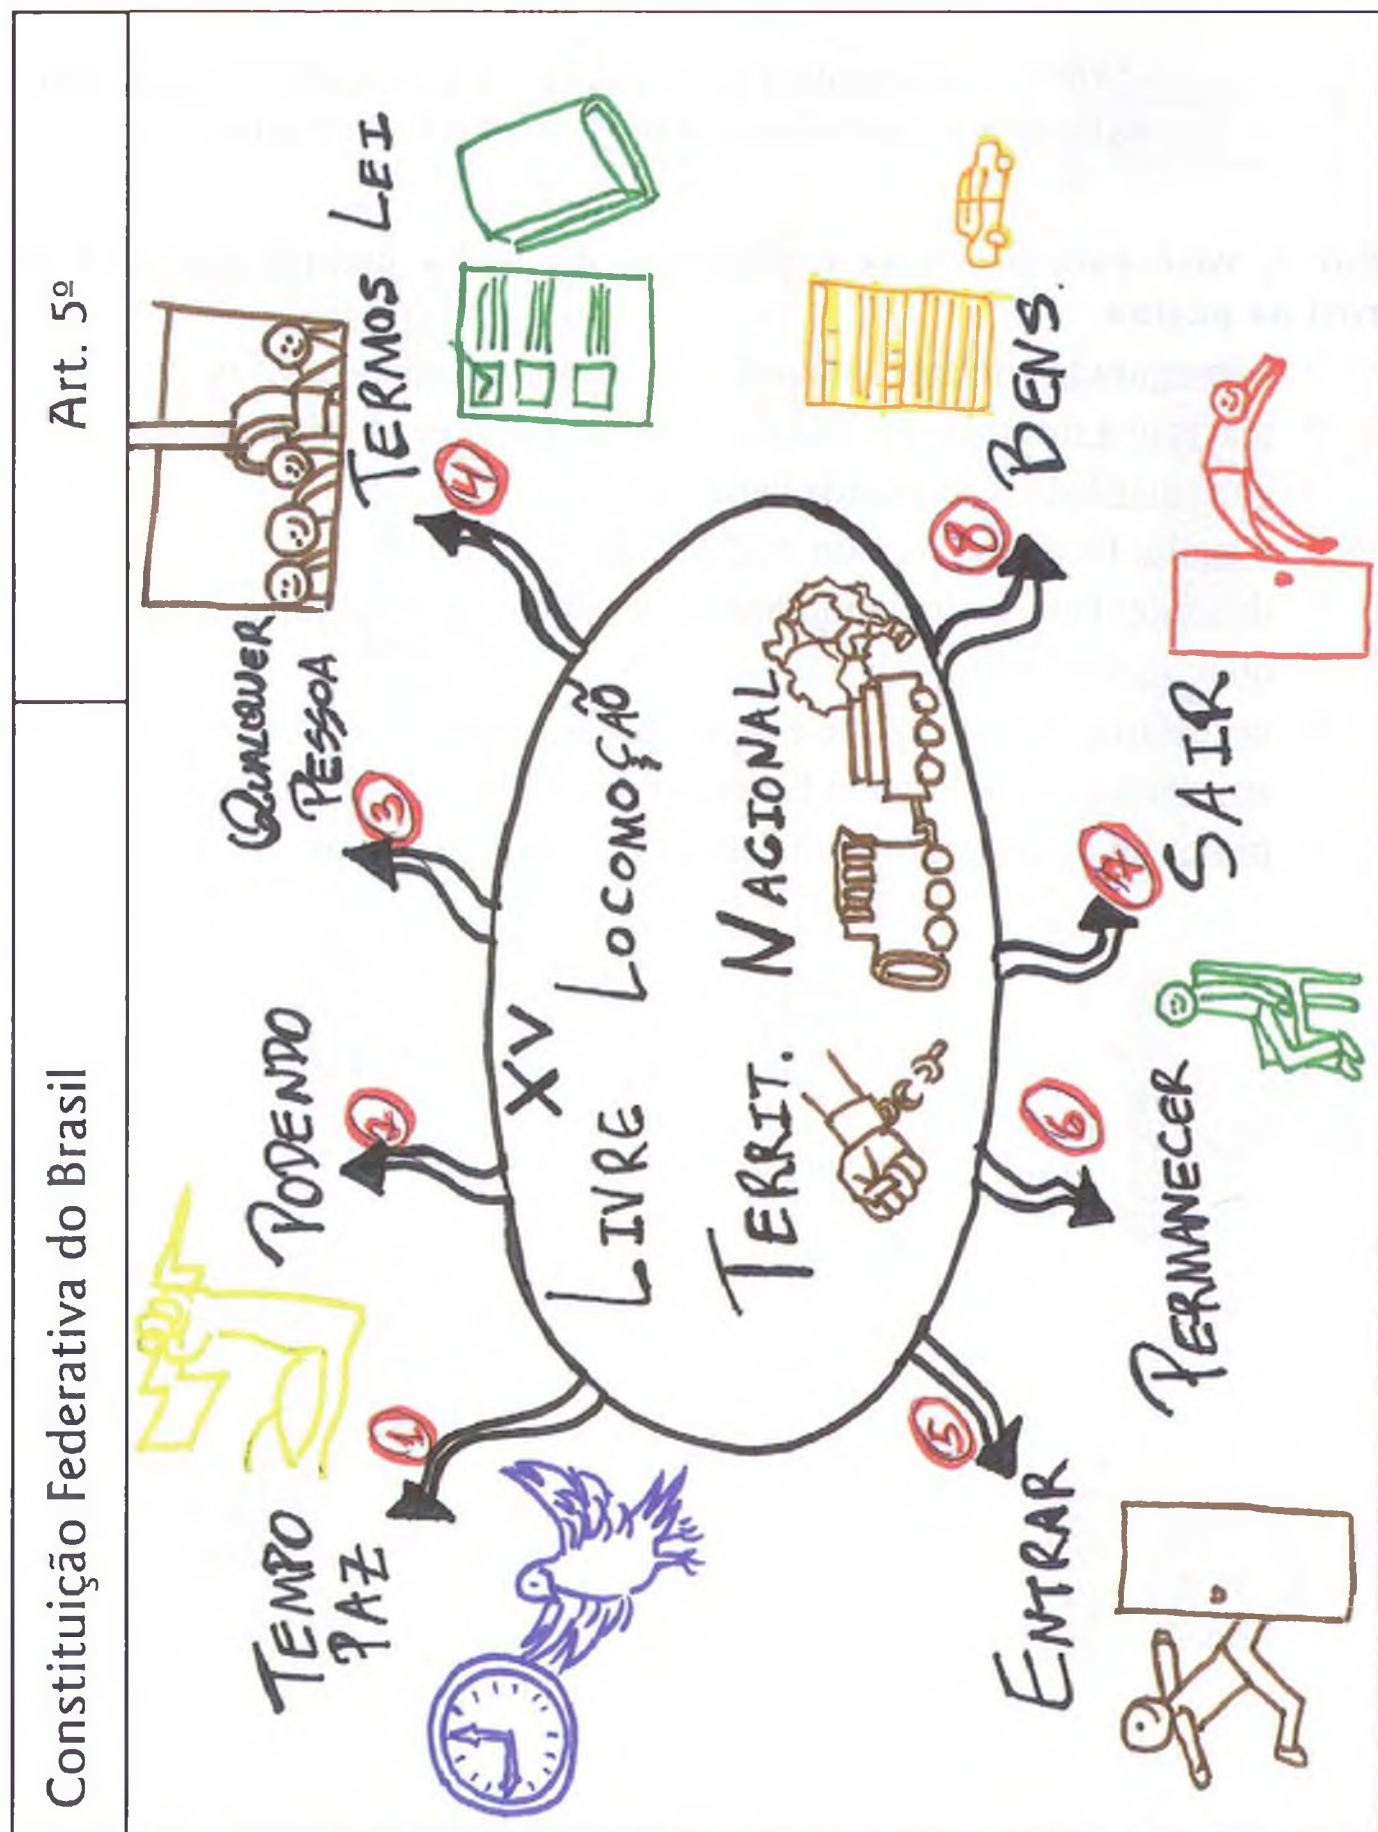 Constituição Federativa do Brasil
Art. 5º
XV
LIVRE LOCOMOÇÃO
TERRIT. NACIONAL
1
TEMPO
PAZ
2
PODENDO
3
QUALQUER
PESSOA
4
TERMOS LEI
5
ENTRAR
6
PERMANECER
7
SAIR
8
BENS.